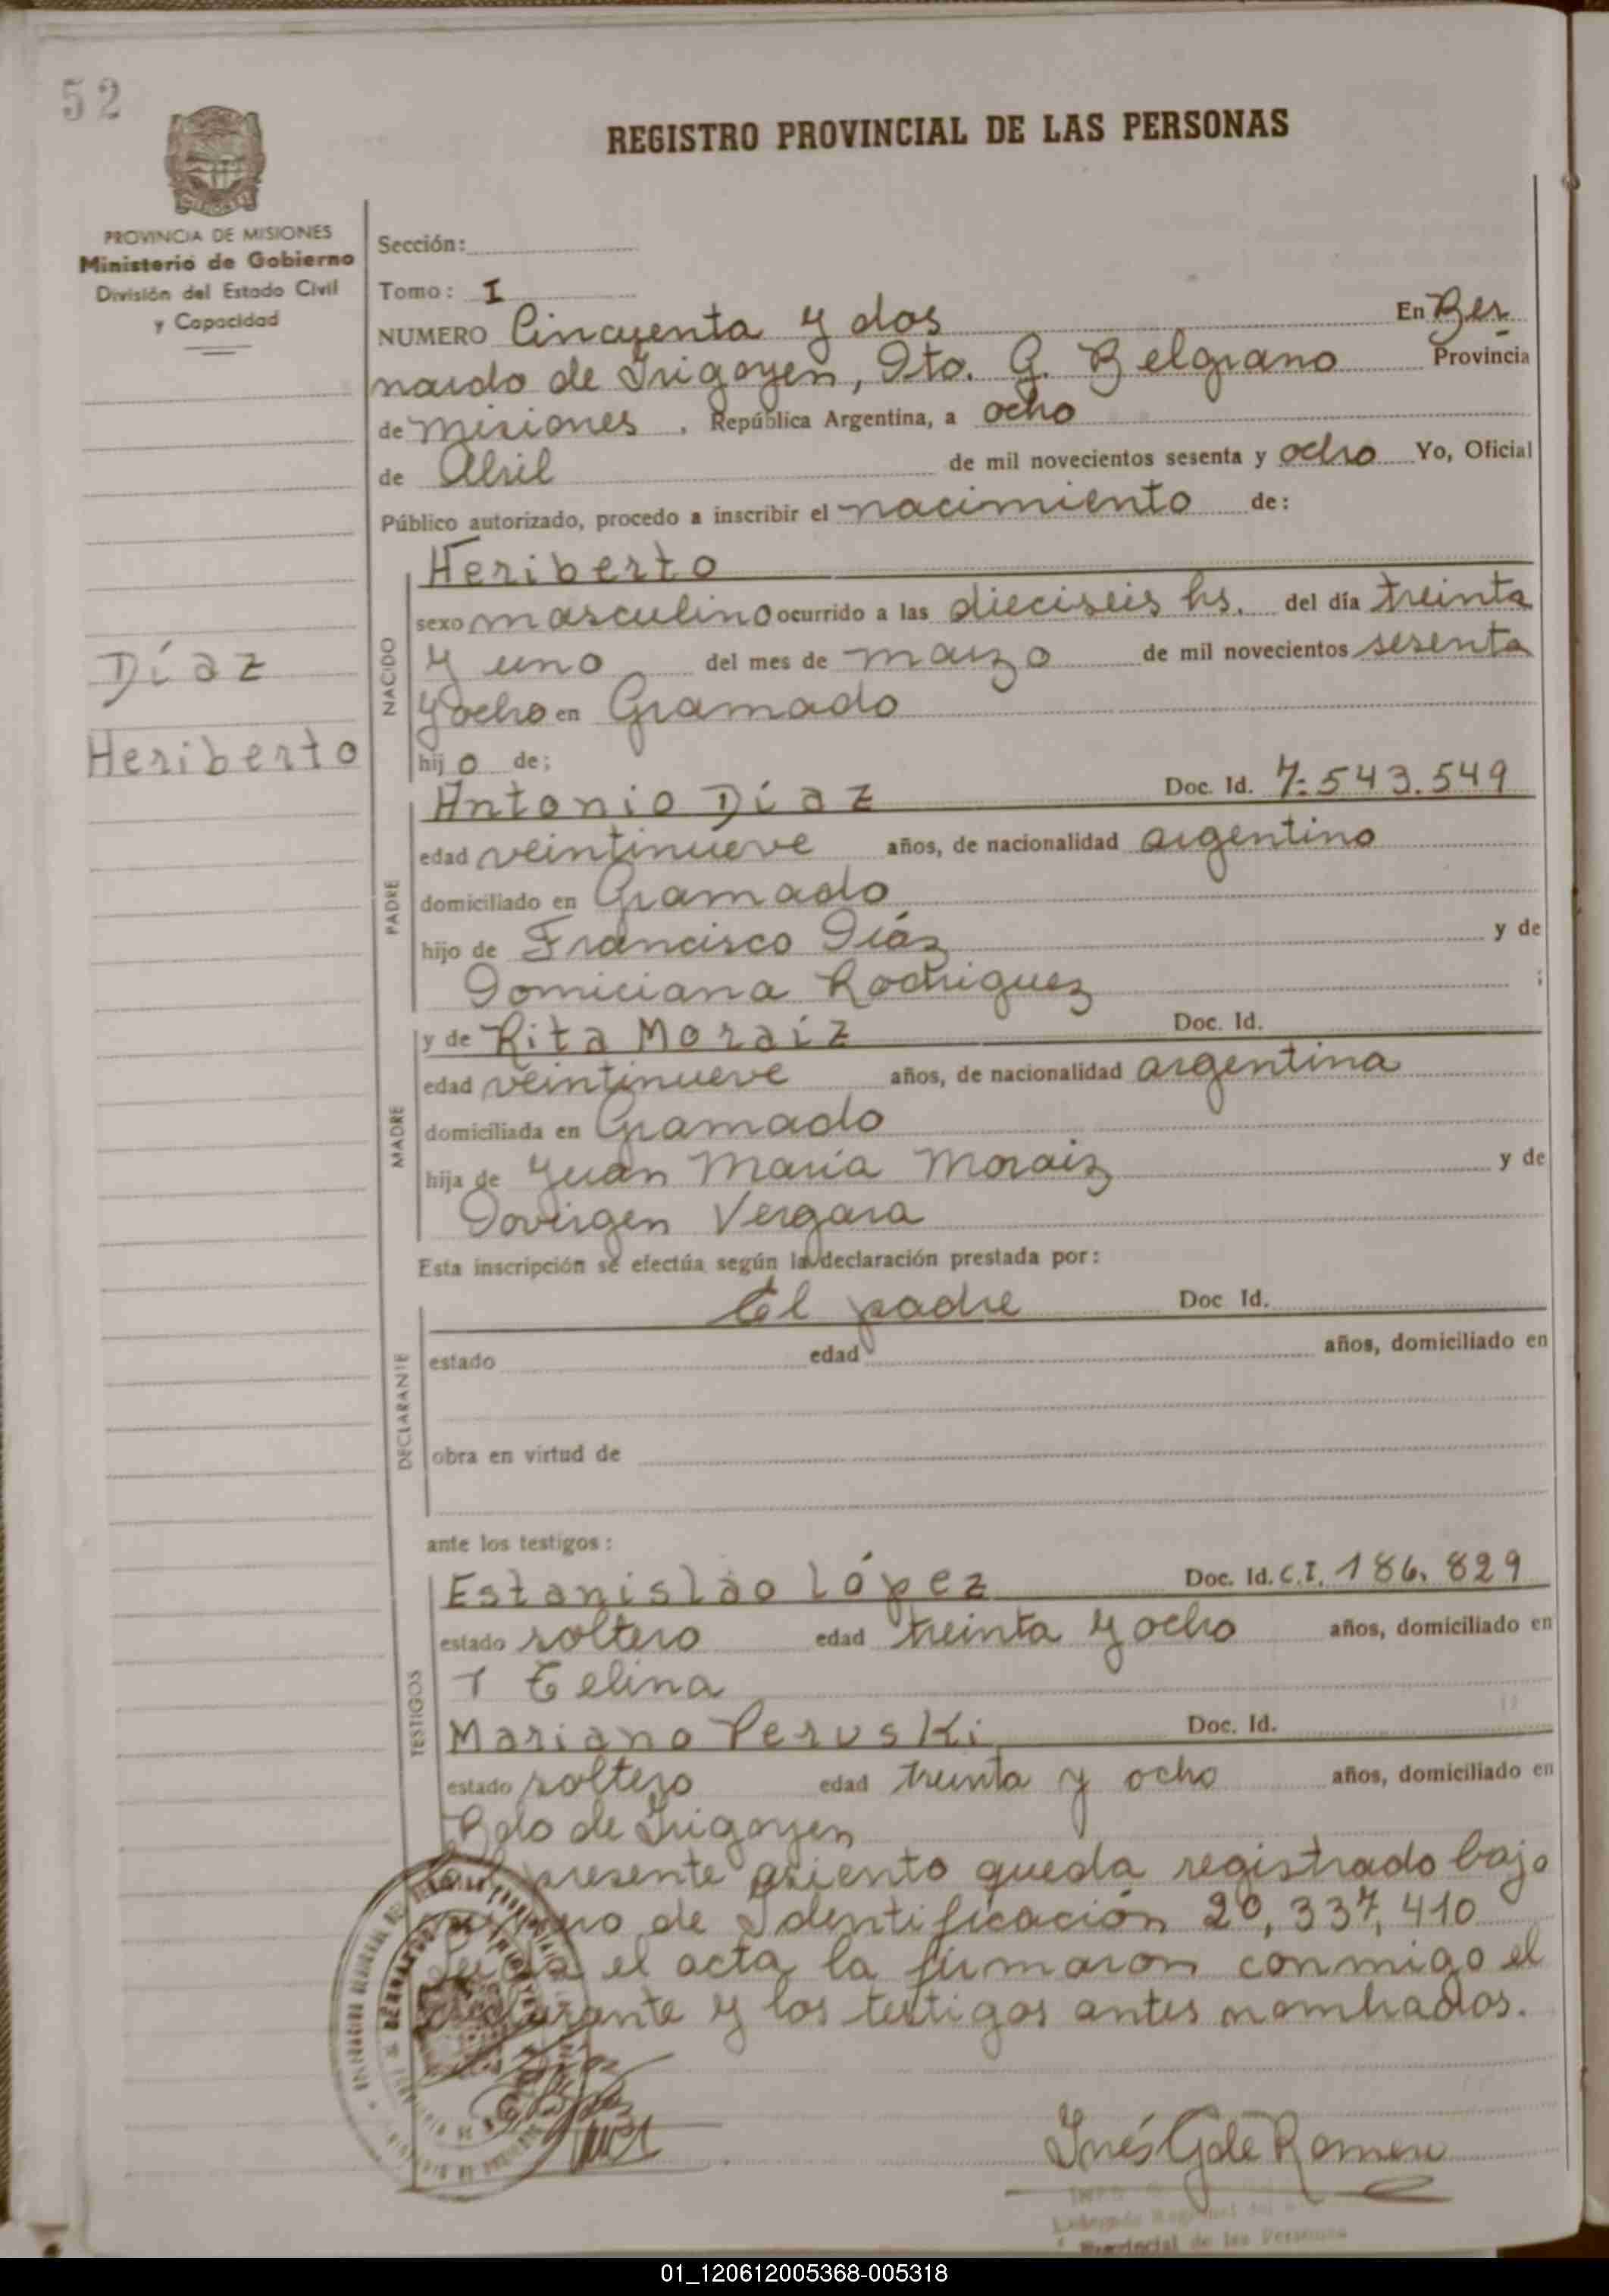 52
REGISTRO PROVINCIAL DE LAS PERSONAS
PROVINCIA DE MISIONES
Ministerio de Gobierno
División del Estado Civil
y Capacidad
Díaz
Heriberto
Sección:
Tomo: I
NUMERO Cincuenta y dos En Ber
nardo de Irigoyen, Dto. G. Belgrano Provincia
de Misiones, República Argentina, a ocho
de Abril de mil novecientos sesenta y ocho Yo, Oficial
Público autorizado, procedo a inscribir el nacimiento de:
NACIDO
Heriberto
sexo masculino ocurrido a las dieciseis hs. del día treinta
y uno del mes de marzo de mil novecientos sesenta
y ocho en Gramado
hijo de;
PADRE
Antonio Díaz Doc. Id. 7.543.549
edad veintinueve años, de nacionalidad argentino
domiciliado en Gramado
hijo de Francisco Diáz y de
Domiciana Rodriguez ;
MADRE
y de Rita Moraíz Doc. Id.
edad veintinueve años, de nacionalidad argentina
domiciliada en Gramado
hija de Juan María Moraiz y de
Dovirgen Vergara
Esta inscripción se efectúa según la declaración prestada por:
DECLARANTE
El padre Doc Id.
estado edad años, domiciliado en
obra en virtud de
ante los testigos:
TESTIGOS
Estanislao López Doc. Id. C.I. 186.829
estado soltero edad treinta y ocho años, domiciliado en
Mariano Peruski Doc. Id.
estado soltero edad treinta y ocho años, domiciliado en
Bdo de Irigoyen
presente asiento queda registrado bajo
de Identificación 20,337,410
el acta la firmaron conmigo el
y los testigos antes nombrados.
Inés G de Romero
Provincial de las Personas
01_120612005368-005318